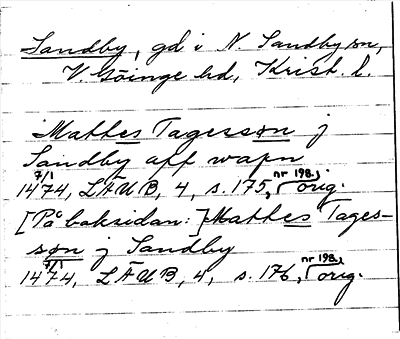 Sandby, gd i N. Sandby sn,
V. Göinge hd, Krist. l.
Mattes Tagesson j
Sandby aff wapn
7/1 nr 198.
1474, LÄUB, 4, s. 175, orig.
[På baksidan:] Mattes Tages-
son j Sandby
7/1 nr 198.
1474, LÄUB, 4, s. 176, orig.